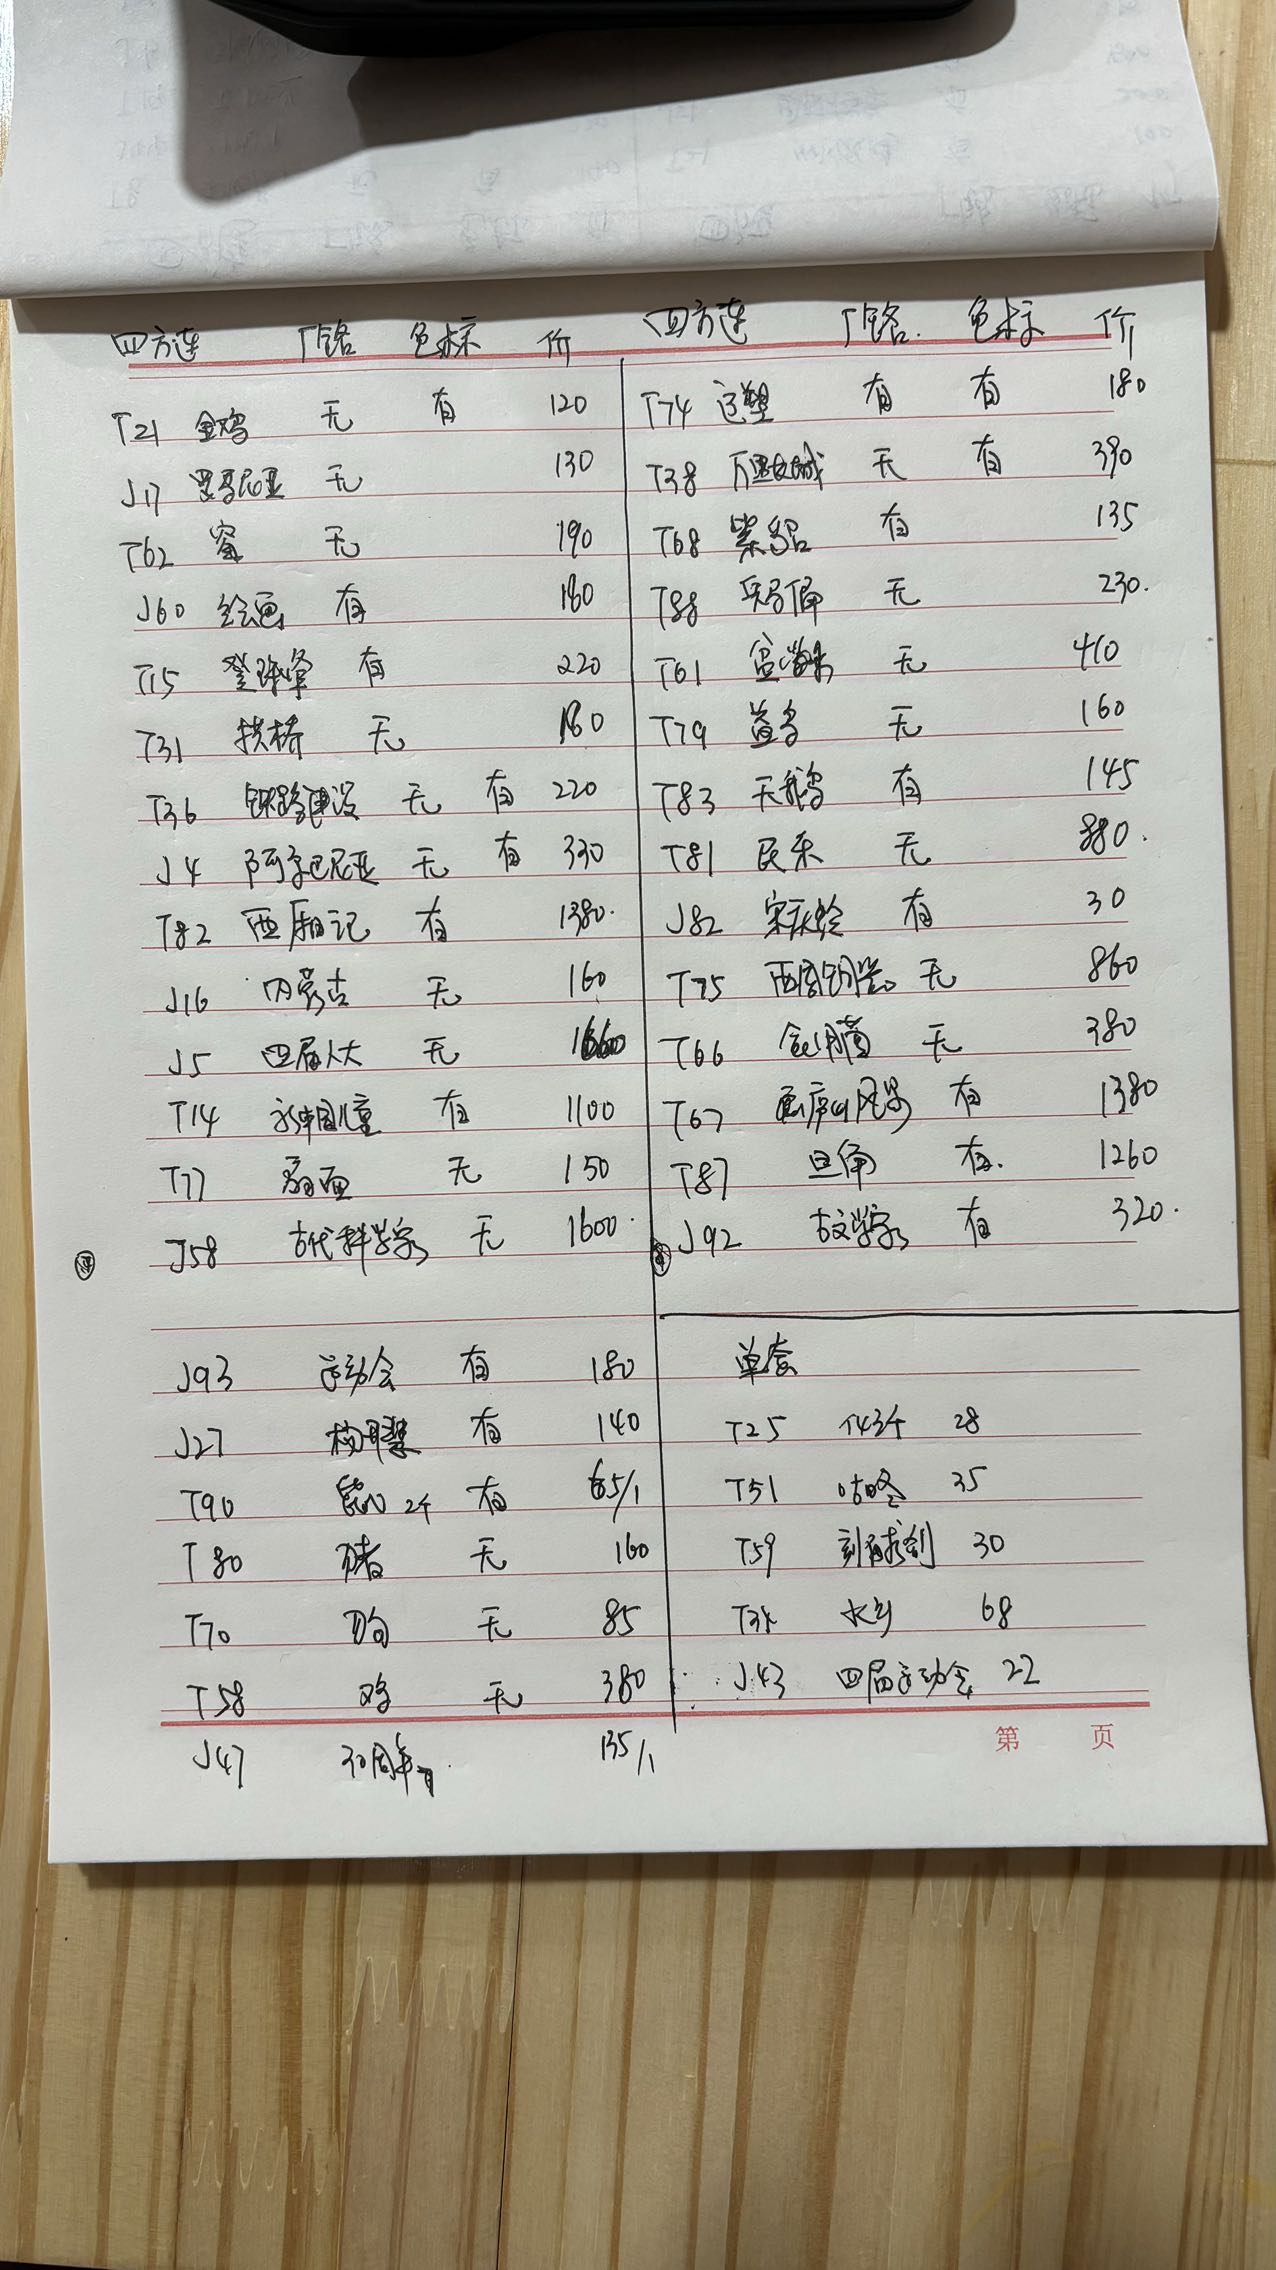 四方连 厂铭 色标 价
T21 金鸡 无 有 120
J17 罗马尼亚 无 130
T62 瓷 无 190
J60 绘画 有 180
T15 登珠峰 有 220
T31 拱桥 无 180
T36 铁路建设 无 有 220
J4 阿尔巴尼亚 无 有 330
T82 西厢记 有 1380.
J16 内蒙古 无 160
J5 四届人大 无
T14 新中国儿童 有 1100
T77 扇面 无 150
J58 古代科学家 无 1600.
J93 运动会 有 180
J27 有 140
T90 鼠 2个 有 65/1
T80 猪 无 160
T70 狗 无 85
T58 鸡 无 380
J47 30周年 135/1
四方连 厂铭. 色标 价
T74 辽塑 有 有 180
T38 万里长城 无 有 390
T68 紫貂 有 135
T88 兵马俑 无 230.
T61 盆 无 410
T79 益鸟 无 160
T83 天鹅 有 145
T81 民乐 无 880.
J82 宋庆龄 有 30
T75 西周铜器 无 860
T66 食用菌 无 380
T67 庐山风景 有 1380
T87 旦角 有. 1260
J92 古文学家 有 320.
单套
T25 28
T51 咕咚 35
T59 刻舟求剑 30
水乡 68
J43 四届运动会 22
第 页